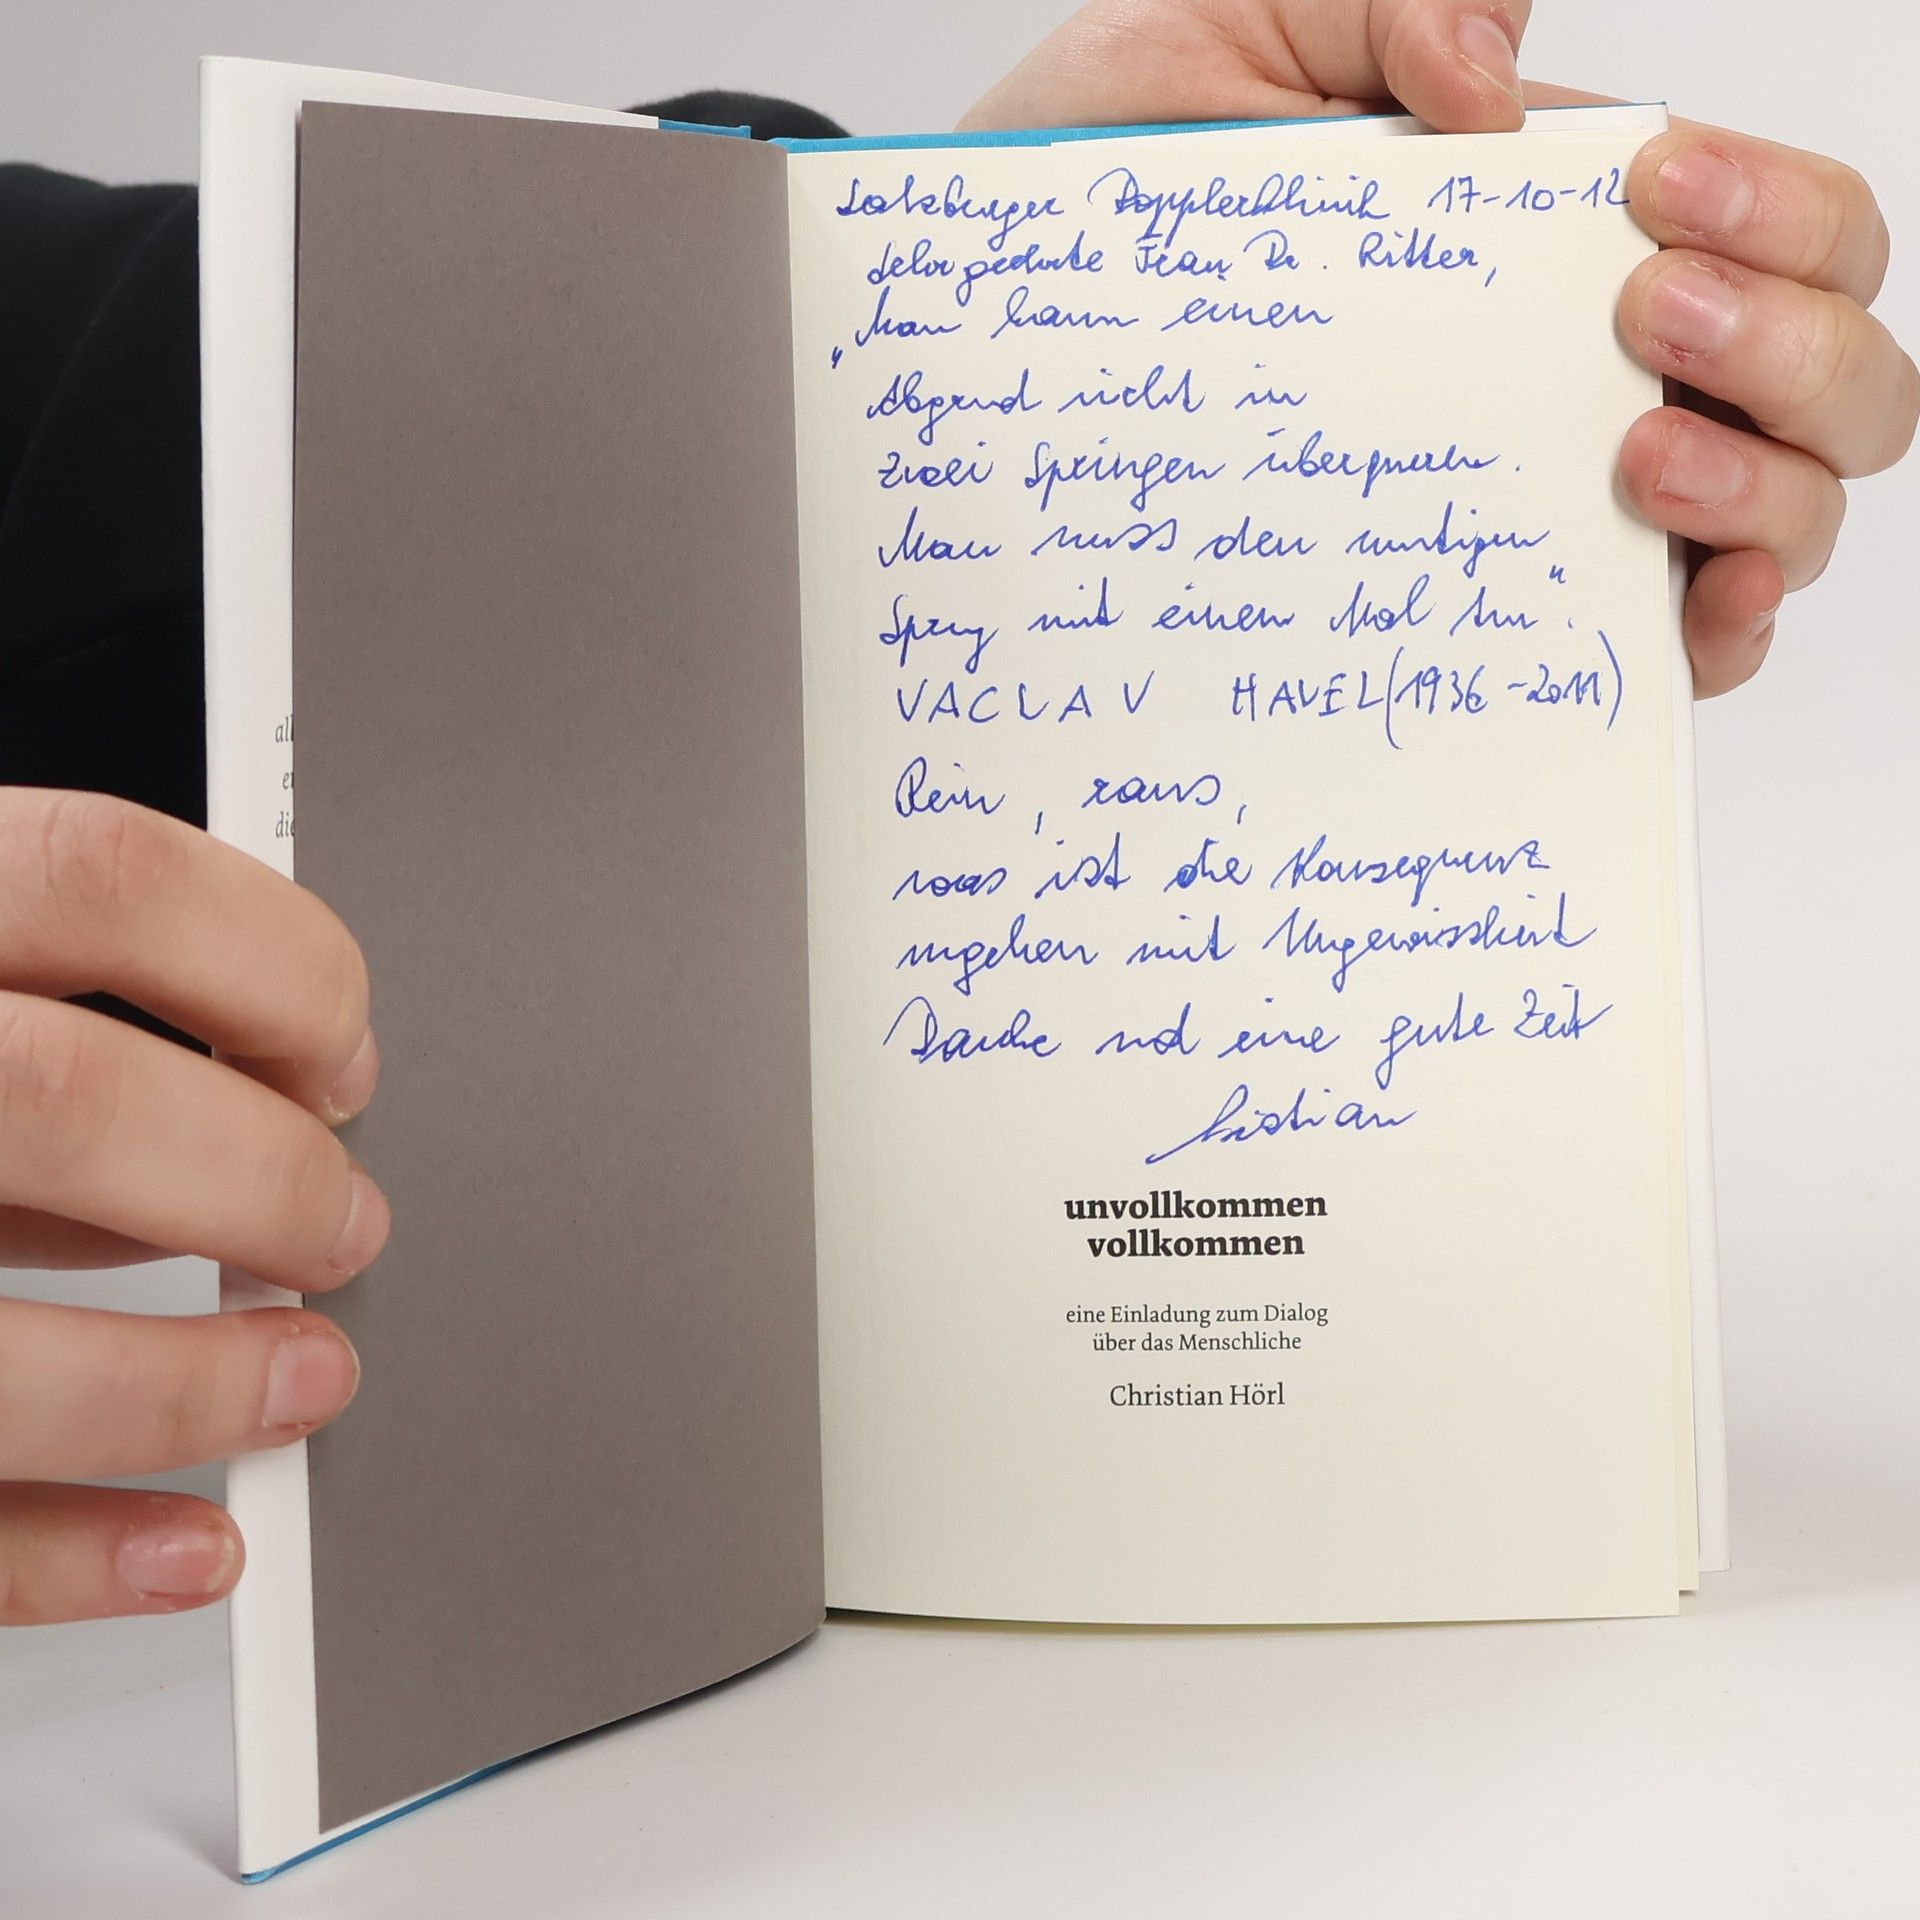 all
die
Salzburger Dopplerklinik 17-10-12
Sehr geehrte Frau Dr. Ritter,
„Man kann einen
Abgrund nicht in
zwei Springen überqueren.
Man muss den mutigen
Sprung mit einem Mal tun“.
VACLAV HAVEL (1936-2011)
Rein, raus,
was ist die Konsequenz
umgehen mit Ungewissheit
Danke und eine gute Zeit
unvollkommen
vollkommen
eine Einladung zum Dialog
über das Menschliche
Christian Hörl